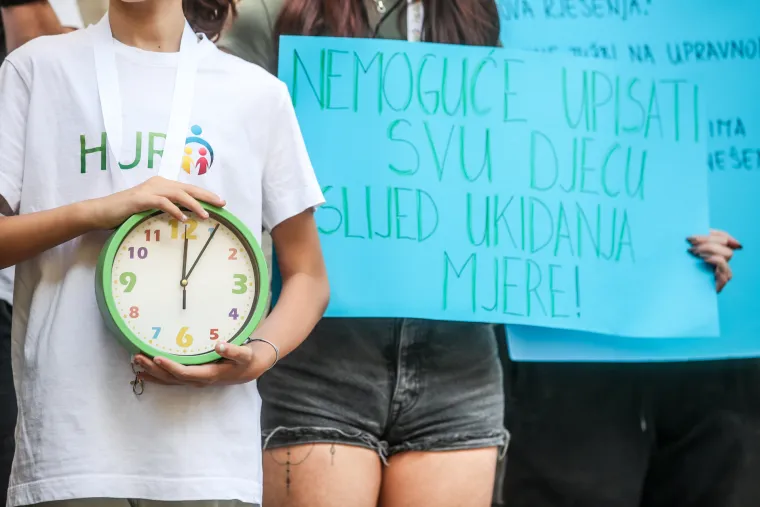 HJR
11 12 1
10 2
9 3
8 4
7 6 5
NEMOGUĆE UPISATI
SVU DJECU
SLIJED UKIDANJA
MJERE!
RJEŠENJA!
NA UPRAVNO
IMA